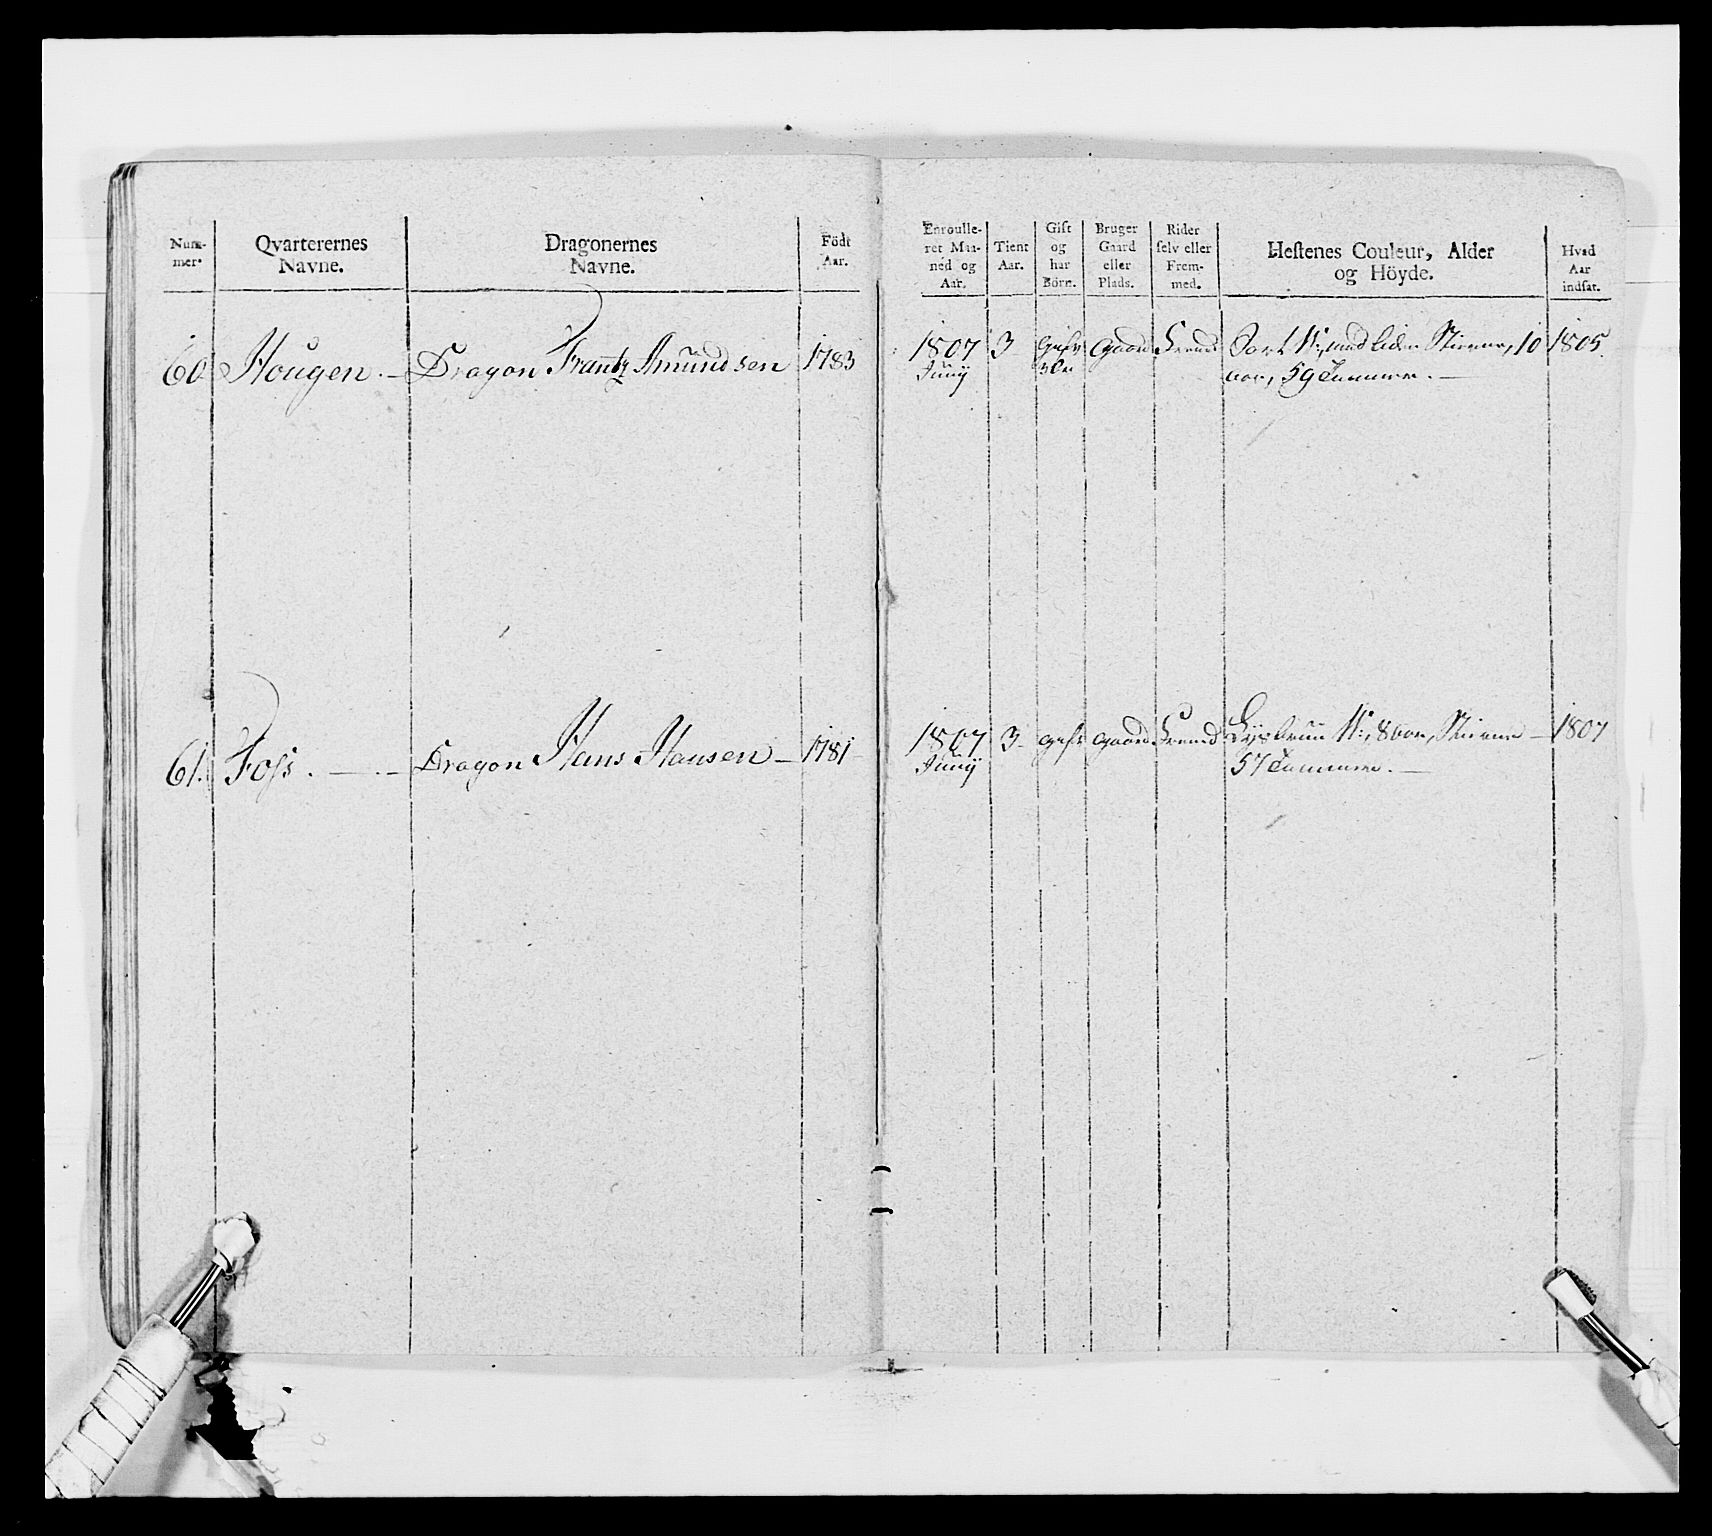 Num-
mer.
Qvarterernes
Navne.
Dragonernes
Navne.
Födt
Aar.
Enroulle-
ret Maa-
ned og
Aar.
Tient
Aar.
Gift
og
har
Börn.
Bruger
Gaard
eller
Plads.
Rider
selv eller
Frem-
med.
Hestenes Couleur, Alder
og Höyde.
Hvad
Aar
indsat.
60 Hougen. — Dragon Frantz Amundsen 1783 1807 3 gift Gaard Fremd Sort med liden Stierne, 10 1805.
Juny aar, 59 Tommer. —
61. Foss. — — Dragon Hans Hansen — 1781 1807 3 — gift gaard Fremd Lysbruun 8 aar, Stierne — 1807
Juny 57 Tommer. —